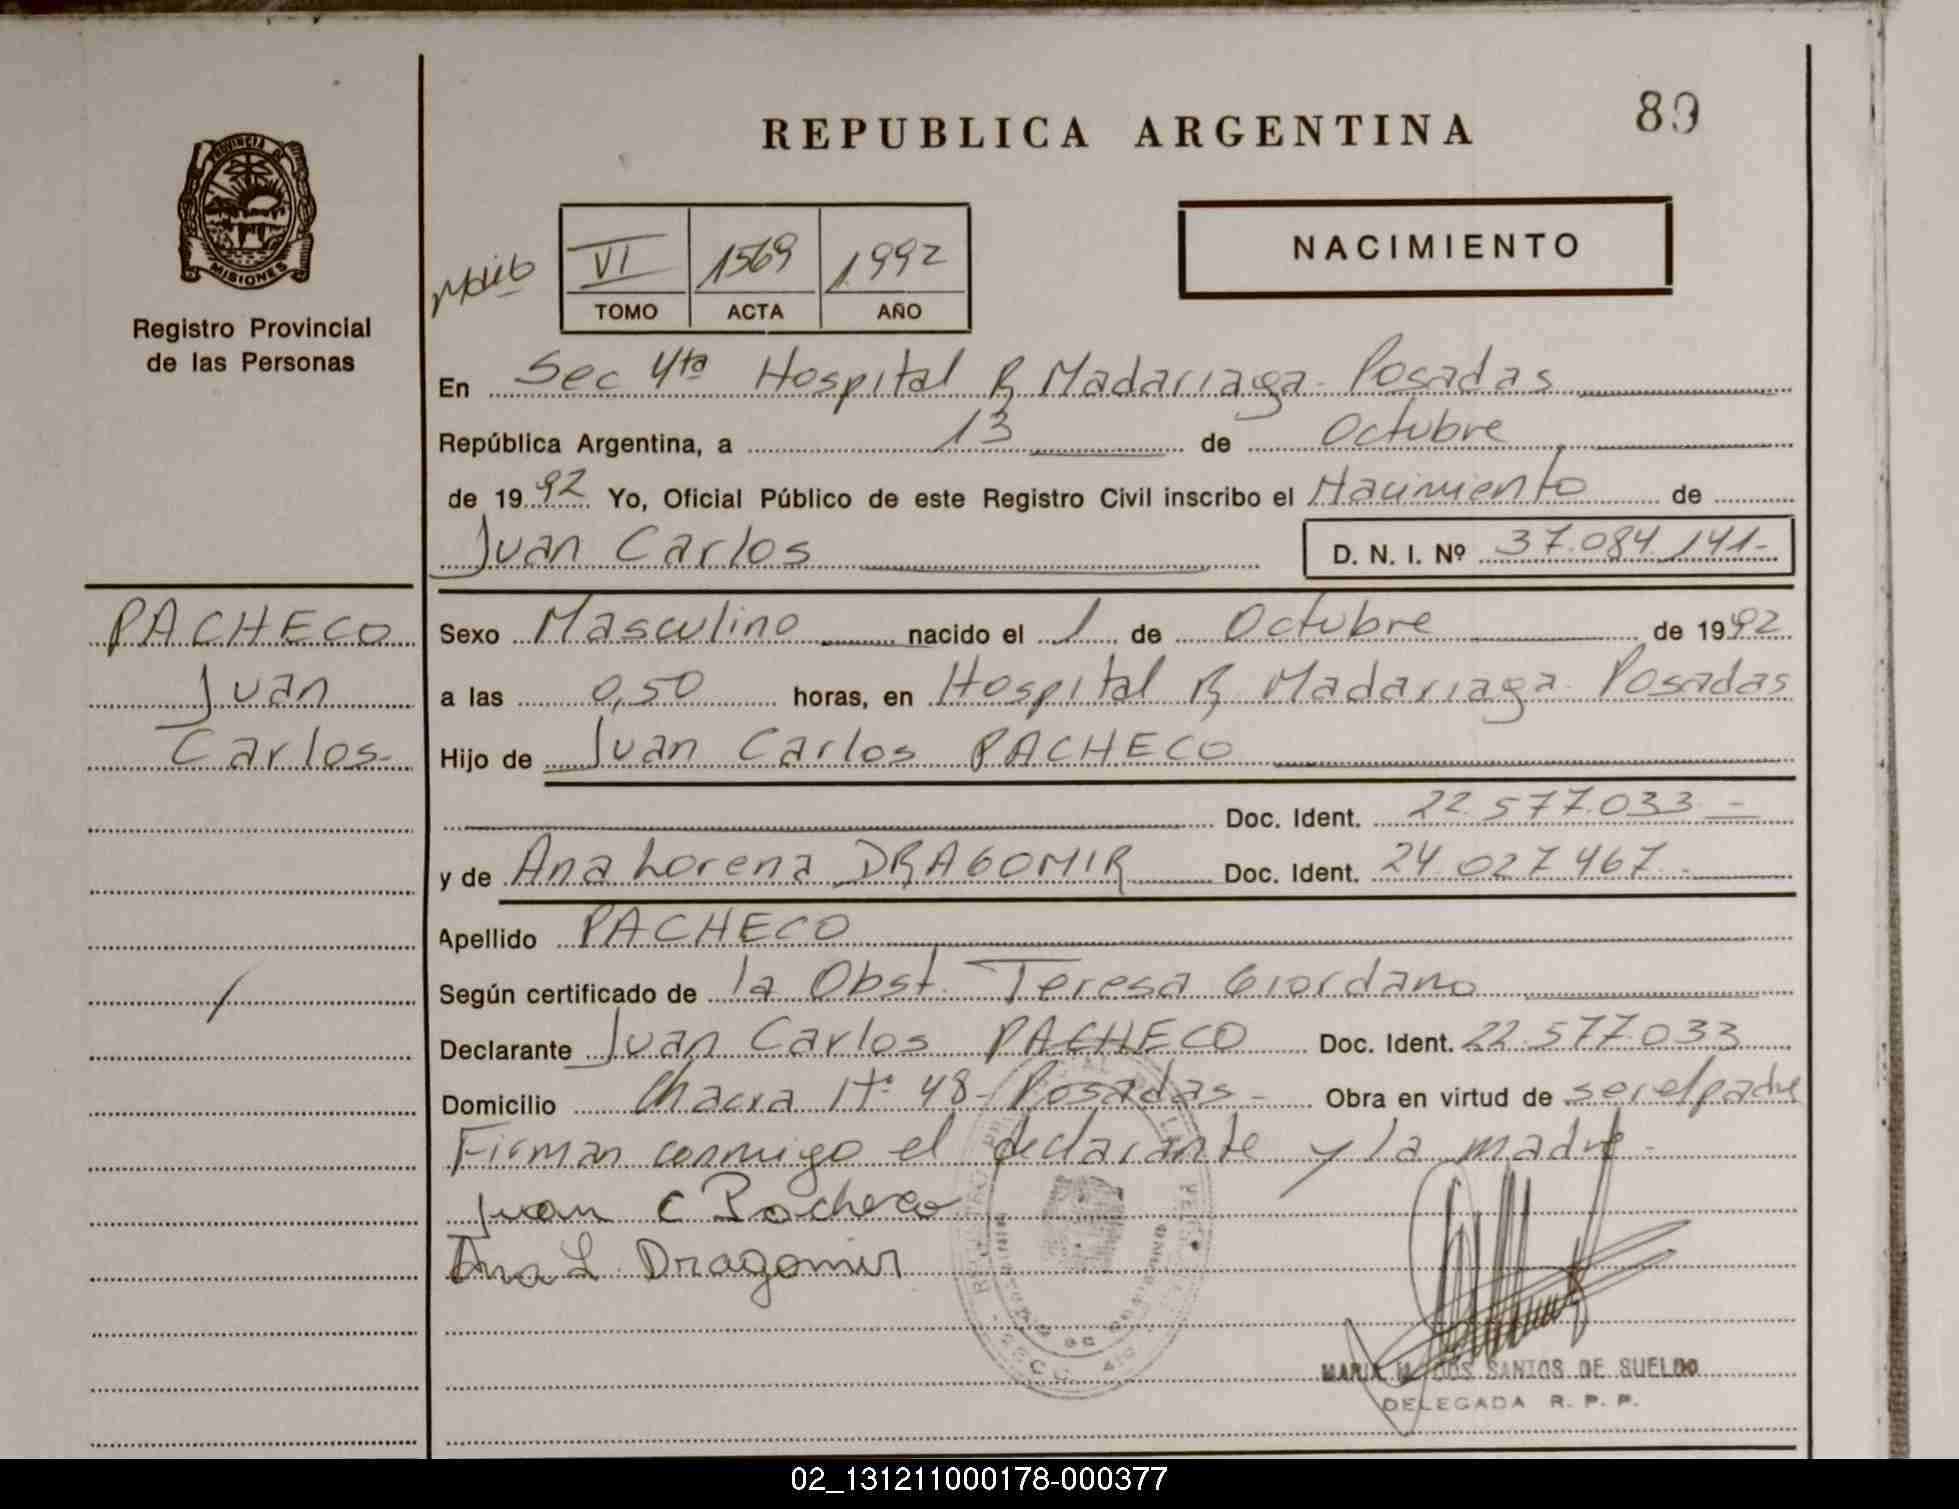 REPUBLICA ARGENTINA
89
PROVINCIA DE
MISIONES
Registro Provincial
de las Personas
VI 1569 1992
TOMO ACTA AÑO
NACIMIENTO
En Sec 4ta Hospital R Madariaga - Posadas
República Argentina, a 13 de Octubre
de 1992 Yo, Oficial Público de este Registro Civil inscribo el Nacimiento de
Juan Carlos D. N. I. Nº 37.084.141-
PACHECO
Juan
Carlos-
Sexo Masculino nacido el 1 de Octubre de 1992
a las 0,50 horas, en Hospital R Madariaga - Posadas
Hijo de Juan Carlos PACHECO
Doc. Ident. 22.577.033 -
y de Ana Lorena DRAGOMIR Doc. Ident. 24.027.467.-
Apellido PACHECO
Según certificado de la Obst. Teresa Giordano
Declarante Juan Carlos PACHECO Doc. Ident. 22.577.033
Domicilio Chacra Nº 48 - Posadas - Obra en virtud de ser el padre
Firman conmigo el declarante y la madre -
Juan C Pacheco
Ana L Dragomir
MARIA M. DOS SANTOS DE SUELDO
DELEGADA R. P. P.
02_131211000178-000377